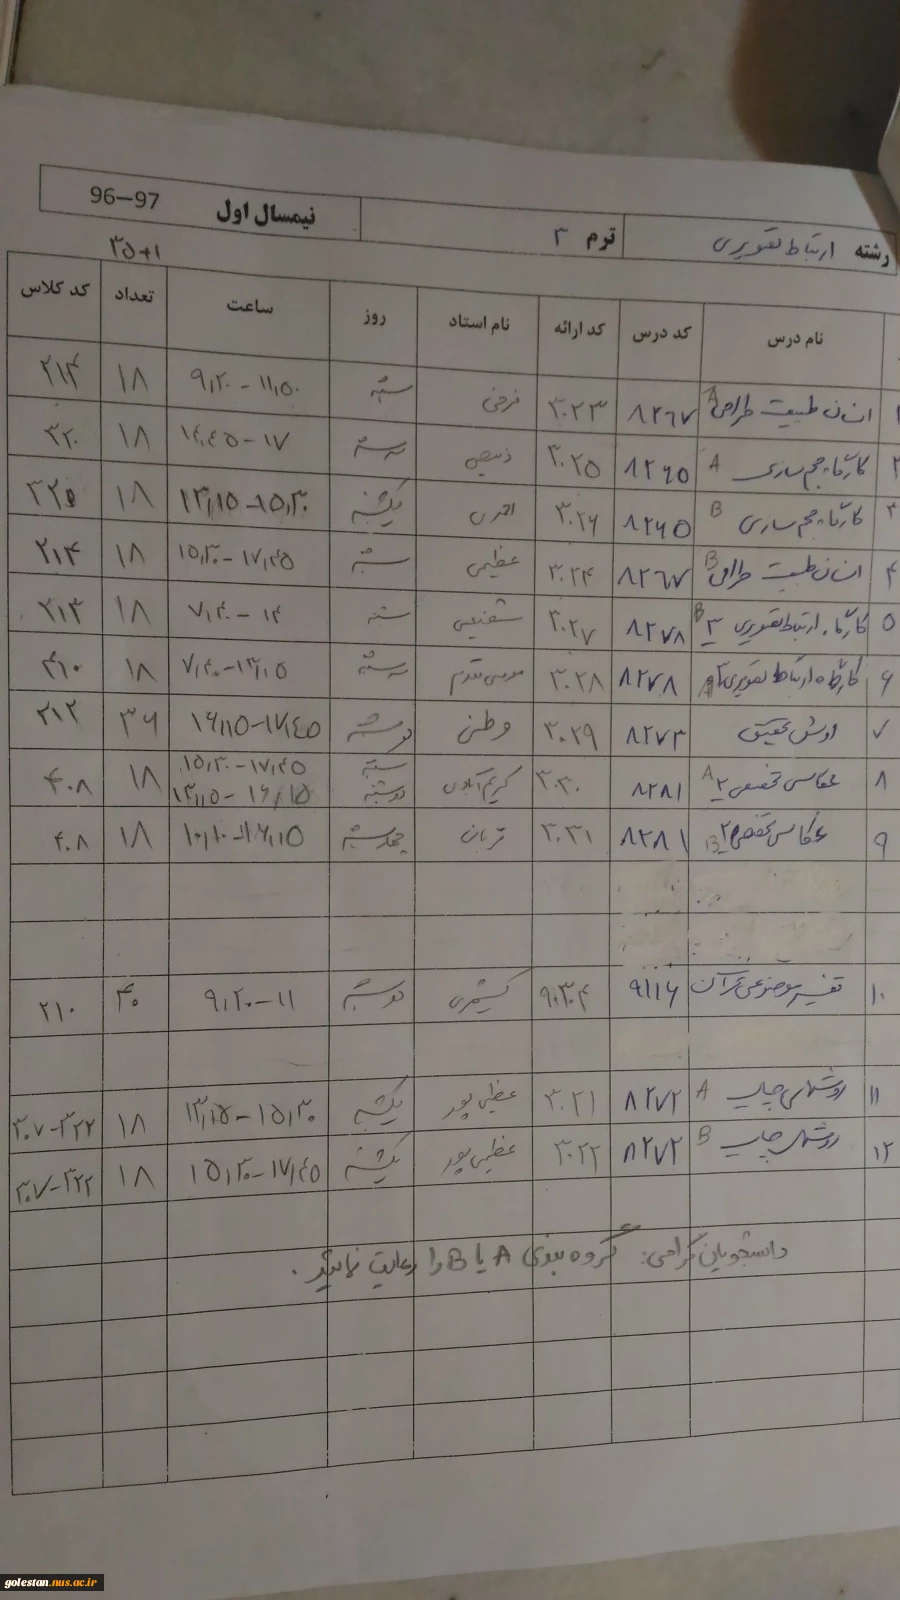 رشته ارتباط تصویری ترم ۳ نیمسال اول 96-97
۳۵+۱
نام درس کد درس کد ارائه نام استاد روز ساعت تعداد کد کلاس
انسان طبیعت طراحی A ۸۲۶۷ ۳۰۲۳ فرخی شنبه ۹,۲۰ - ۱۱,۵۰ ۱۸ ۲۱۴
۲ کارگاه حجم سازی A ۸۲۶۵ ۳۰۲۵ ذبیحی سه شنبه ۱۴,۴۵ - ۱۷ ۱۸ ۳۲۰
۳ کارگاه حجم سازی B ۸۲۶۵ ۳۰۲۶ یکشنبه ۱۳,۱۵ - ۱۵,۳۰ ۱۸ ۳۲۵
۴ انسان طبیعت طراحی B ۸۲۶۷ ۳۰۲۴ عظیمی شنبه ۱۵,۳۰ - ۱۷,۴۵ ۱۸ ۲۱۴
۵ کارگاه ارتباط تصویری ۳ B ۸۲۷۸ ۳۰۲۷ شفیعی شنبه ۷,۴۰ - ۱۴ ۱۸ ۲۱۳
۶ کارگاه ارتباط تصویری ۳ A ۸۲۷۸ ۳۰۲۸ سه شنبه ۷,۴۰ - ۱۳,۰۵ ۱۸ ۴۱۰
۷ روش تحقیق ۸۲۷۳ ۳۰۲۹ وطنی دوشنبه ۱۶,۱۵ - ۱۷,۴۵ ۳۶ ۲۱۲
۸ عکاسی تخصصی ۲ A ۸۲۸۱ ۳۰۳۰ کریم آبادی شنبه ۱۵,۳۰ - ۱۷,۴۵ ۱۸ ۴۰۸
دوشنبه ۱۳,۱۵ - ۱۶,۱۵
۹ عکاسی تخصصی ۲ B ۸۲۸۱ ۳۰۳۱ قربان چهارشنبه ۱۰,۱۰ - ۱۶,۱۵ ۱۸ ۴۰۸
۱۰ تفسیر موضوعی قرآن ۹۱۱۶ ۹۰۳۰۴ کشمیری دوشنبه ۹,۲۰ - ۱۱ ۴۰ ۲۱۰
۱۱ روشهای چاپ A ۸۲۷۲ ۳۰۲۱ عظیم پور یکشنبه ۱۳,۱۵ - ۱۵,۳۰ ۱۸ ۳۰۷-۳۲۲
۱۲ روشهای چاپ B ۸۲۷۲ ۳۰۲۲ عظیم پور یکشنبه ۱۵,۳۰ - ۱۷,۴۵ ۱۸ ۳۰۷-۳۲۲
دانشجویان گرامی: گروه بندی A یا B را رعایت نمایید.
golestan.nus.ac.ir